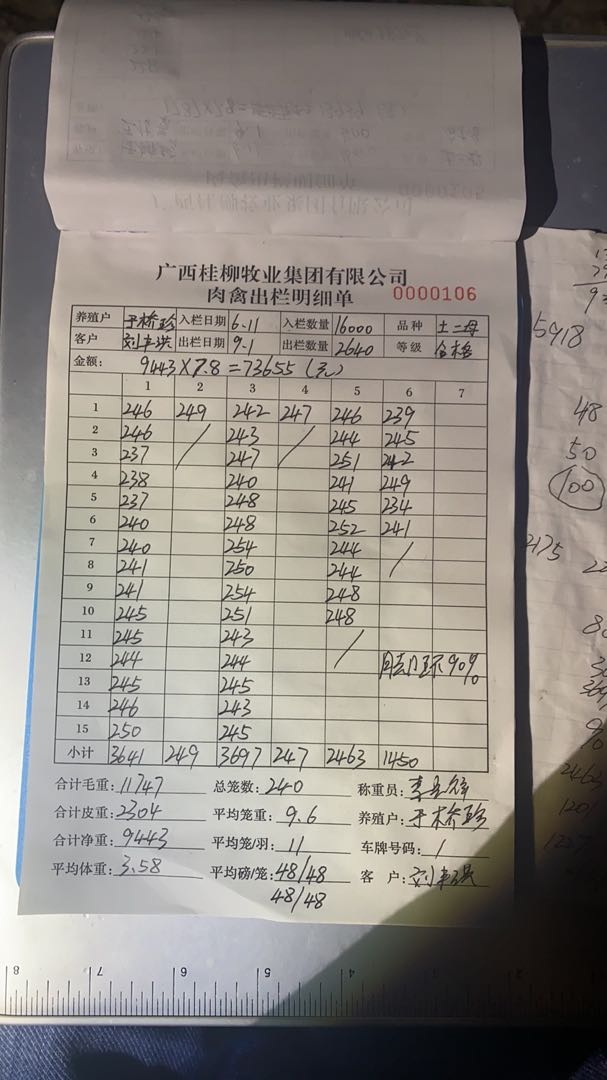 广西桂柳牧业集团有限公司
肉禽出栏明细单 0000106
养殖户 于桥珍 入栏日期 6.11 入栏数量 16000 品种 土二母
客户 出栏日期 9.1 出栏数量 2640 等级 合格
金额: 9443×7.8=73655(元)
1 2 3 4 5 6 7
1 246 249 242 247 246 239
2 246 / 243 / 244 245
3 237 247 251 242
4 238 240 241 249
5 237 248 245 234
6 240 248 252 241
7 240 254 244 /
8 241 250 244
9 241 254 248
10 245 251 248
11 245 243 /
12 244 244 90%
13 245 245
14 246 243
15 250 245
小计 3641 249 3697 247 2463 1450
合计毛重: 11747 总笼数: 240 称重员:
合计皮重: 2304 平均笼重: 9.6 养殖户: 于桥珍
合计净重: 9443 平均笼/羽: 11 车牌号码: /
平均体重: 3.58 平均磅/笼: 48/48 客 户:
48/48
5918
48
50
100
2175
8 7 6 5 4 2